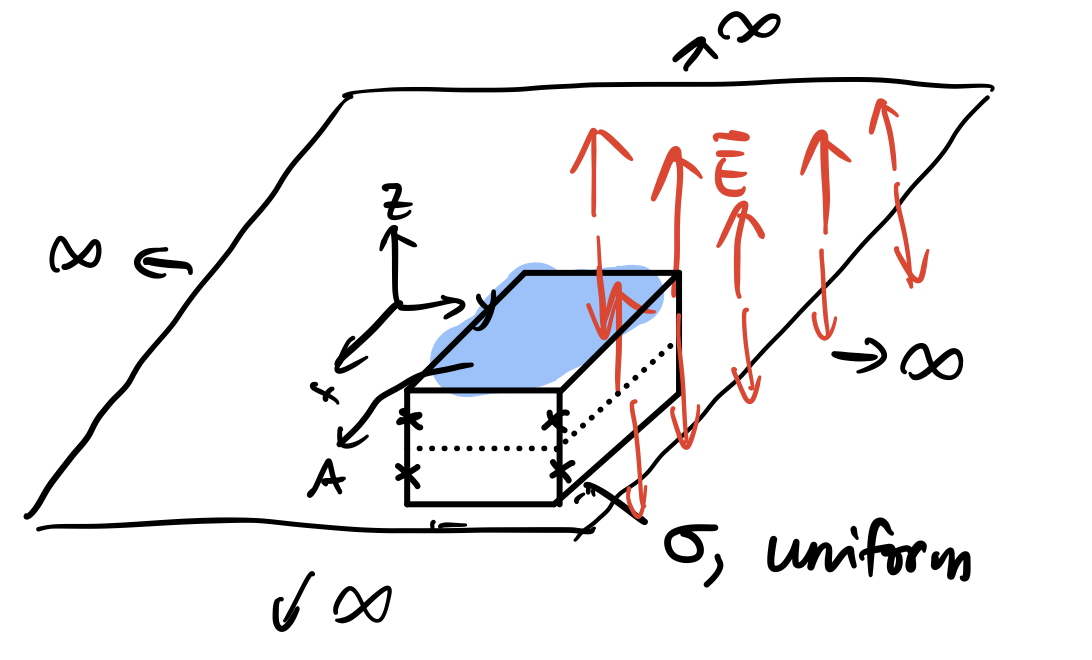 ∞
E̅
z
∞
y
∞
x
A
σ, uniform
∞